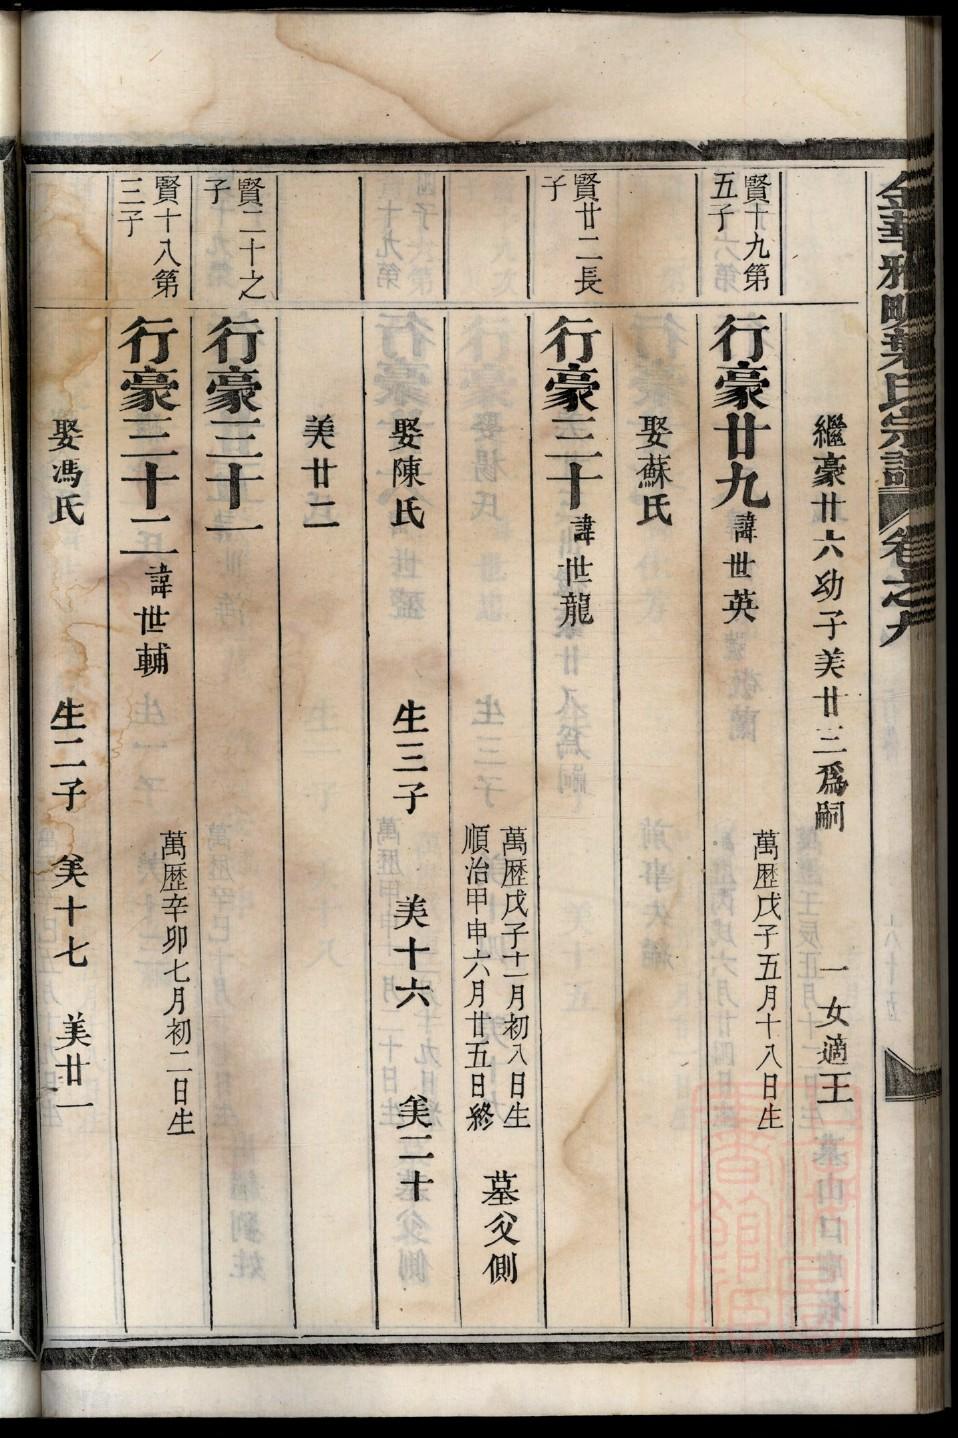 金華雅畈葉氏宗譜 卷之九
繼豪廿六幼子美廿三爲嗣 一女適王
賢十九第五子
行豪廿九 諱世英 萬歷戊子五月十八日生
娶蘇氏
賢廿二長子
行豪三十 諱世龍
萬歷戊子十一月初八日生
順治甲申六月廿五日終 墓父側
娶陳氏 生三子 美十六 美二十
美廿二
賢二十之子
行豪三十一
賢十八第三子
行豪三十二 諱世輔 萬歷辛卯七月初二日生
娶馮氏 生二子 美十七 美廿一